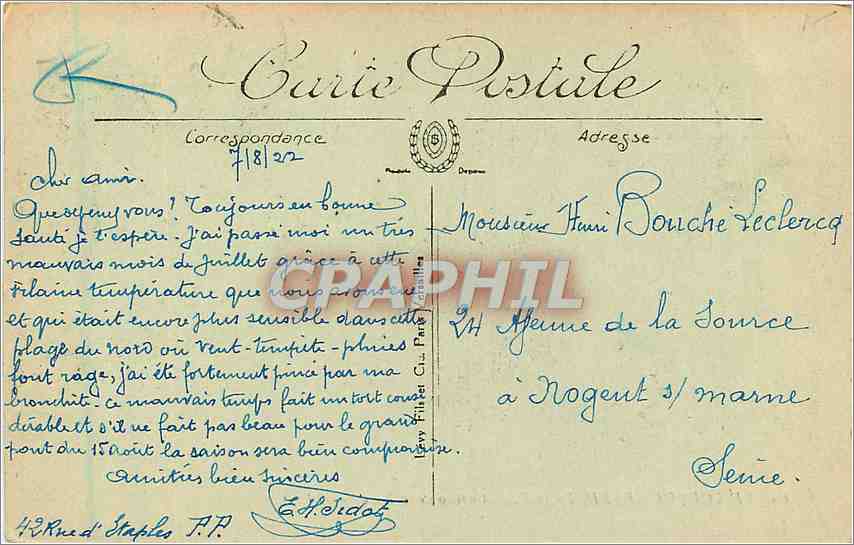 Carte Postale
Correspondance
Adresse
7/8/22
Cher ami.
Que devenez vous? Toujours en bonne
santé je l'espère - J'ai passé moi un très
mauvais mois de Juillet grâce à cette
vilaine température que nous avons eue
et qui était encore plus sensible dans cette
plage du nord où vent - tempête - pluies
font rage, j'ai été fortement pincé par ma
bronchite - ce mauvais temps fait un tort consi-
dérable et s'il ne fait pas beau pour le grand
pont du 15 Août la saison sera bien compromise.
Amitiés bien sincères
E. H. Sidot
42 Rue d'Etaples P.P.
Monsieur Henri Bouché Leclercq
24 Avenue de la Source
à Nogent s/ Marne
Seine.
Lévy Fils et Cie Paris Versailles
CPAPHIL